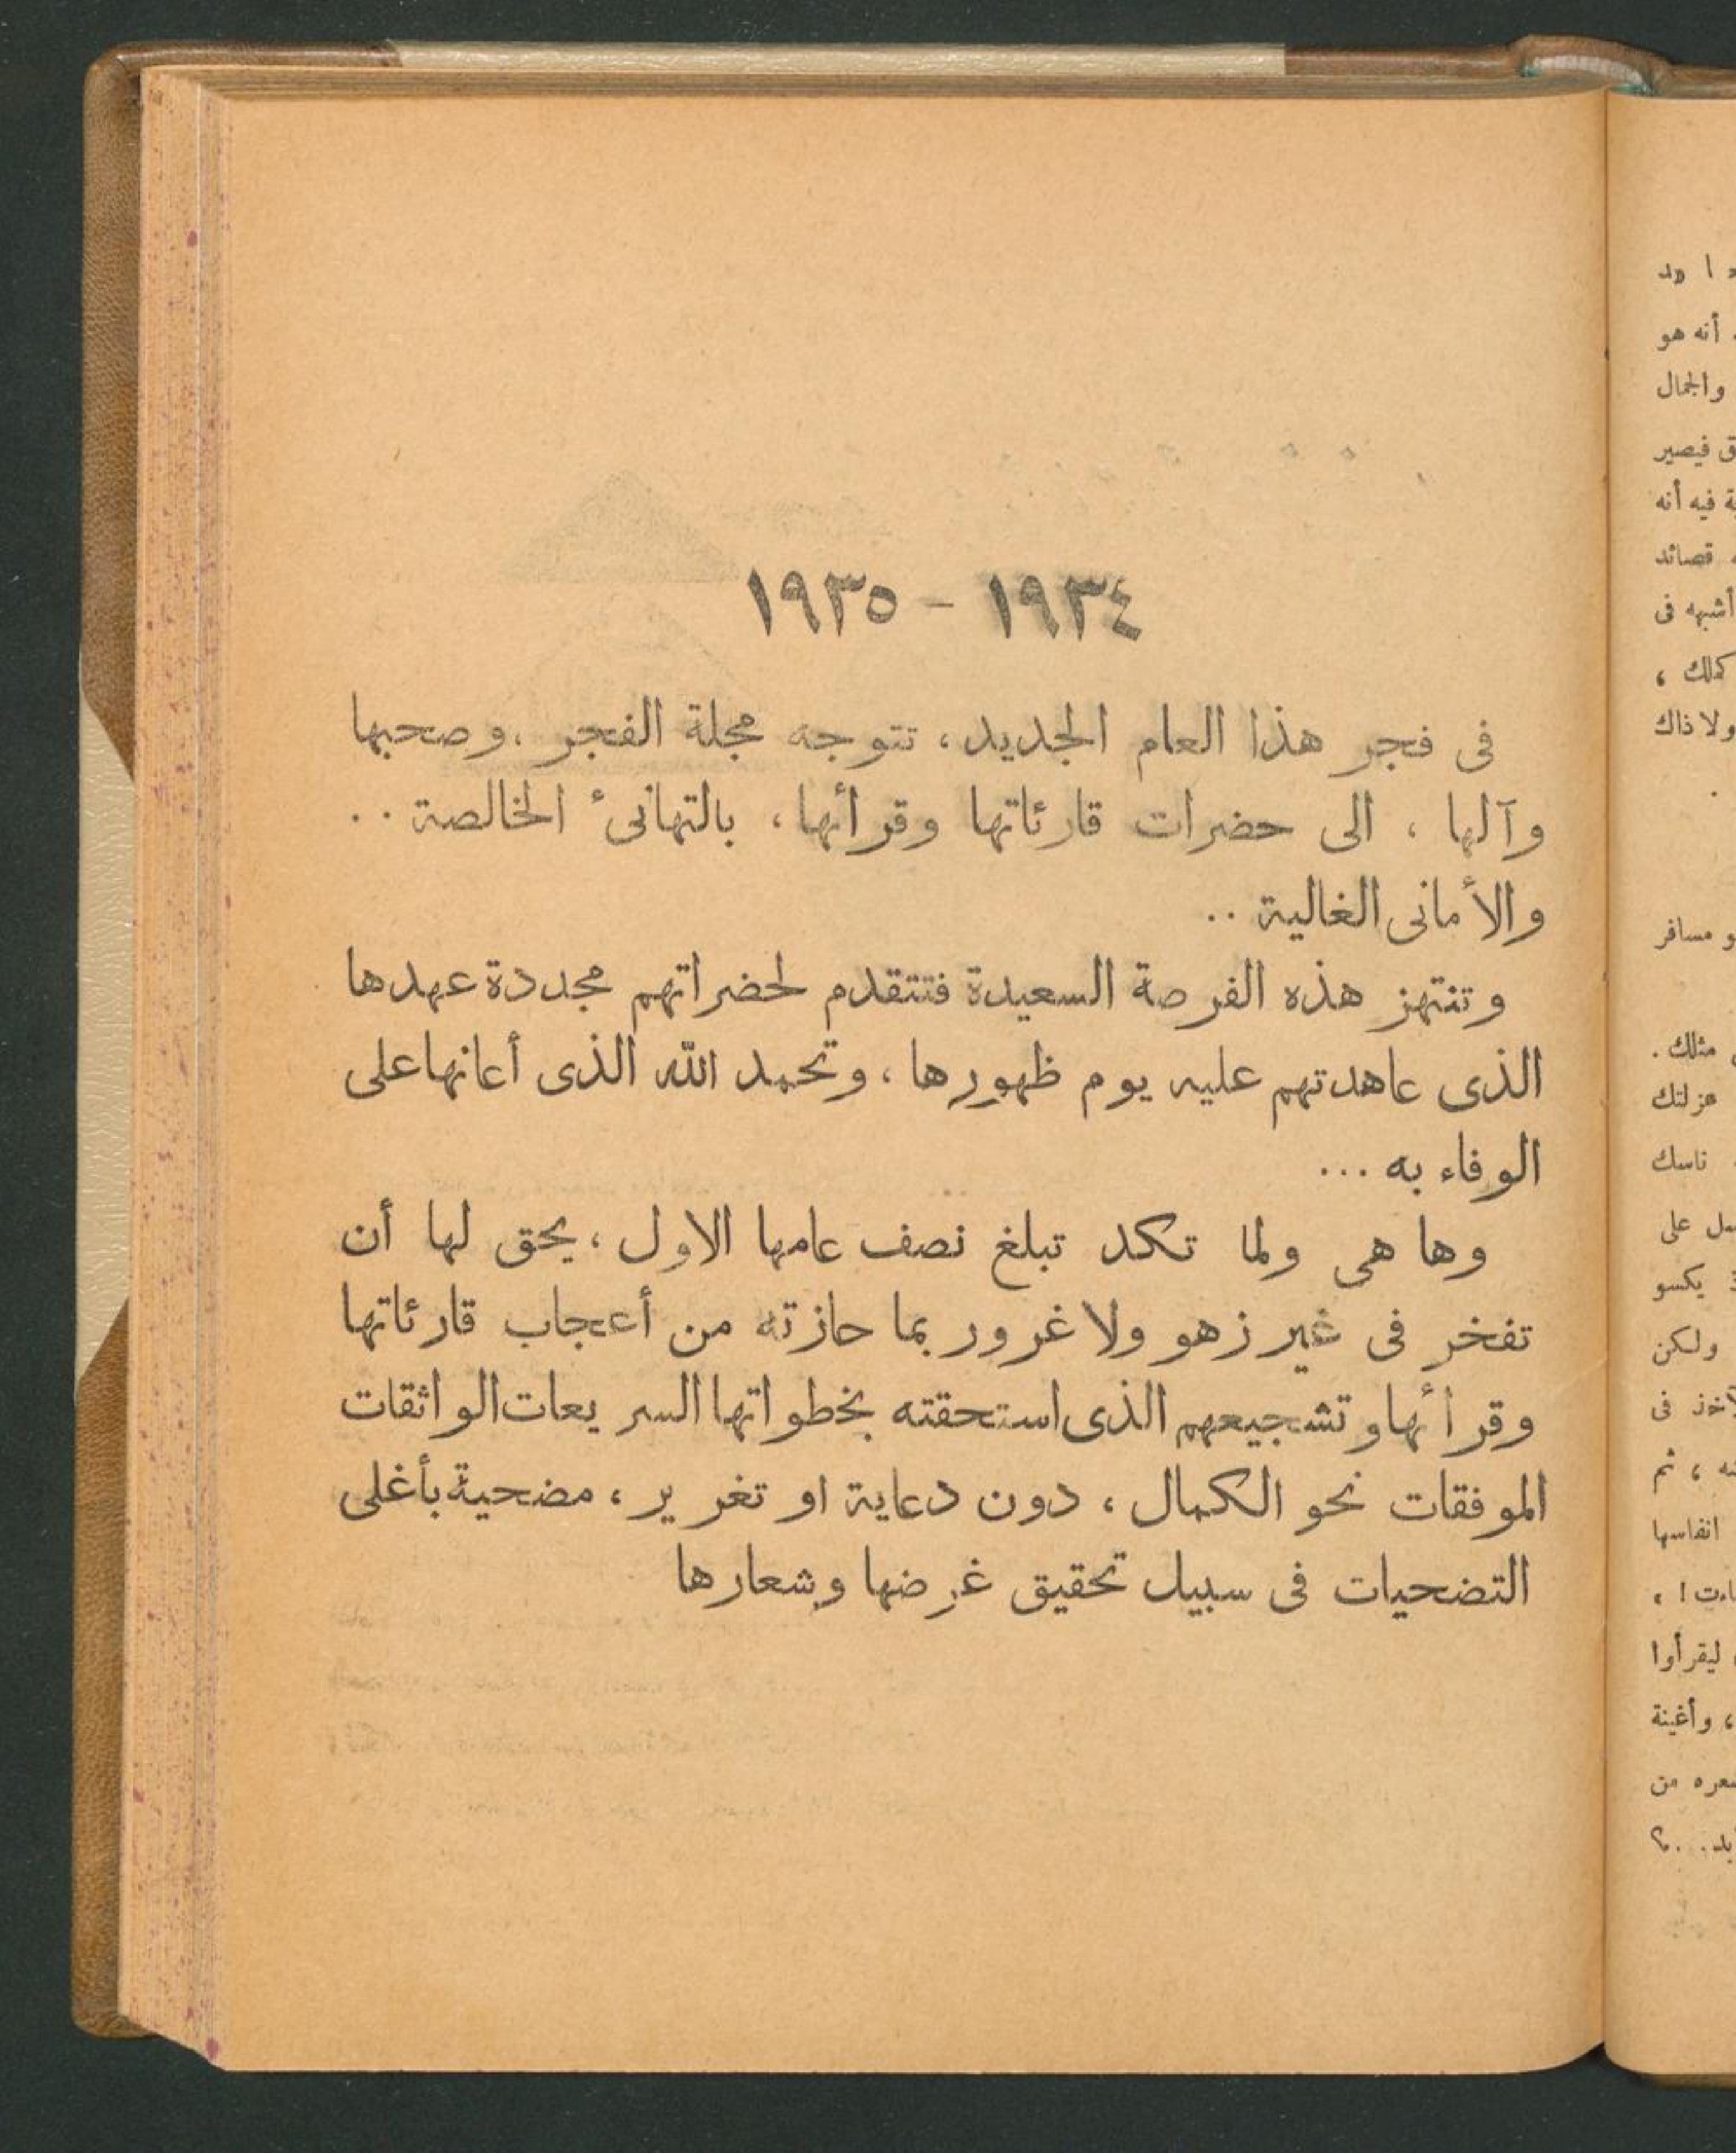 ١٩٣٤ - ١٩٣٥
فى فجر هذا العام الجديد، تتوجه مجلة الفجر، وصحبها
وآلها، الى حضرات قارئاتها وقرائها، بالتهانىء الخالصة..
والأمانى الغالية..
وتنتهز هذه الفرصة السعيدة فتتقدم لحضراتهم مجددة عهدها
الذى عاهدتهم عليه يوم ظهورها، وتحمد الله الذى أعانها على
الوفاء به...
وها هى ولما تكد تبلغ نصف عامها الاول، يحق لها أن
تفخر فى غير زهو ولا غرور بما حازته من أعجاب قارئاتها
وقرائها وتشجيعهم الذى استحقته بخطواتها السريعات الواثقات
الموفقات نحو الكمال، دون دعاية او تغرير، مضحية بأغلى
التضحيات فى سبيل تحقيق غرضها وشعارها
أنه هو
والجمال
فيصير
فيه أنه
قصائد
أشبه فى
كذلك،
ولا ذاك
مسافر
مثلك.
عزلتك
ناسك
على
يكسو
ولكن
فى
، ثم
انفاسها
ليقرأوا
، وأغنية
من